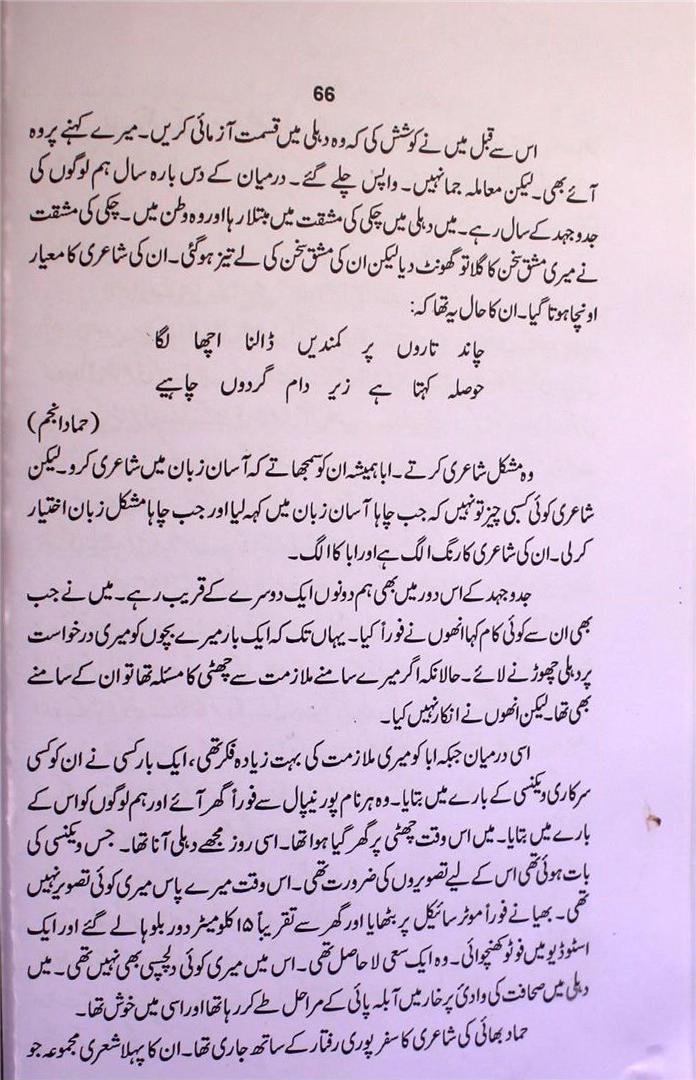 66
اس سے قبل میں نے کوشش کی کہ وہ دہلی میں قسمت آزمائی کریں۔ میرے کہنے پر وہ
آئے بھی۔ لیکن معاملہ جما نہیں۔ واپس چلے گئے۔ درمیان کے دس بارہ سال ہم لوگوں کی
جدوجہد کے سال رہے۔ میں دہلی میں چکی کی مشقت میں مبتلا رہا اور وہ وطن میں۔ چکی کی مشقت
نے میری مشق سخن کا گلا تو گھونٹ دیا لیکن ان کی مشق سخن کی لے تیز ہوگئی۔ ان کی شاعری کا معیار
اونچا ہوتا گیا۔ ان کا حال یہ تھا کہ:
چاند تاروں پر کمندیں ڈالنا اچھا لگا
حوصلہ کہتا ہے زیر دام گردوں چاہیے
(حماد انجم)
وہ مشکل شاعری کرتے۔ ابا ہمیشہ ان کو سمجھاتے کہ آسان زبان میں شاعری کرو۔ لیکن
شاعری کوئی کسبی چیز تو نہیں کہ جب چاہا آسان زبان میں کہہ لیا اور جب چاہا مشکل زبان اختیار
کرلی۔ ان کی شاعری کا رنگ الگ ہے اور ابا کا الگ۔
جدوجہد کے اس دور میں بھی ہم دونوں ایک دوسرے کے قریب رہے۔ میں نے جب
بھی ان سے کوئی کام کہا انھوں نے فوراً کیا۔ یہاں تک کہ ایک بار میرے بچوں کو میری درخواست
پر دہلی چھوڑنے لائے۔ حالانکہ اگر میرے سامنے ملازمت سے چھٹی کا مسئلہ تھا تو ان کے سامنے
بھی تھا۔ لیکن انھوں نے انکار نہیں کیا۔
اسی درمیان جبکہ ابا کو میری ملازمت کی بہت زیادہ فکر تھی، ایک بار کسی نے ان کو کسی
سرکاری ویکنسی کے بارے میں بتایا۔ وہ ہرنام پور نیپال سے فوراً گھر آئے اور ہم لوگوں کو اس کے
بارے میں بتایا۔ میں اس وقت چھٹی پر گھر گیا ہوا تھا۔ اسی روز مجھے دہلی آنا تھا۔ جس ویکنسی کی
بات ہوئی تھی اس کے لیے تصویروں کی ضرورت تھی۔ اس وقت میرے پاس میری کوئی تصویر نہیں
تھی۔ بھیا نے فوراً موٹر سائیکل پر بٹھایا اور گھر سے تقریباً ۱۵ کلومیٹر دور بلوہا لے گئے اور ایک
اسٹوڈیو میں فوٹو کھنچوائی۔ وہ ایک سعی لا حاصل تھی۔ اس میں میری کوئی دلچسپی بھی نہیں تھی۔ میں
دہلی میں صحافت کی وادئ پر خار میں آبلہ پائی کے مراحل طے کر رہا تھا اور اسی میں خوش تھا۔
حماد بھائی کی شاعری کا سفر پوری رفتار کے ساتھ جاری تھا۔ ان کا پہلا شعری مجموعہ جو